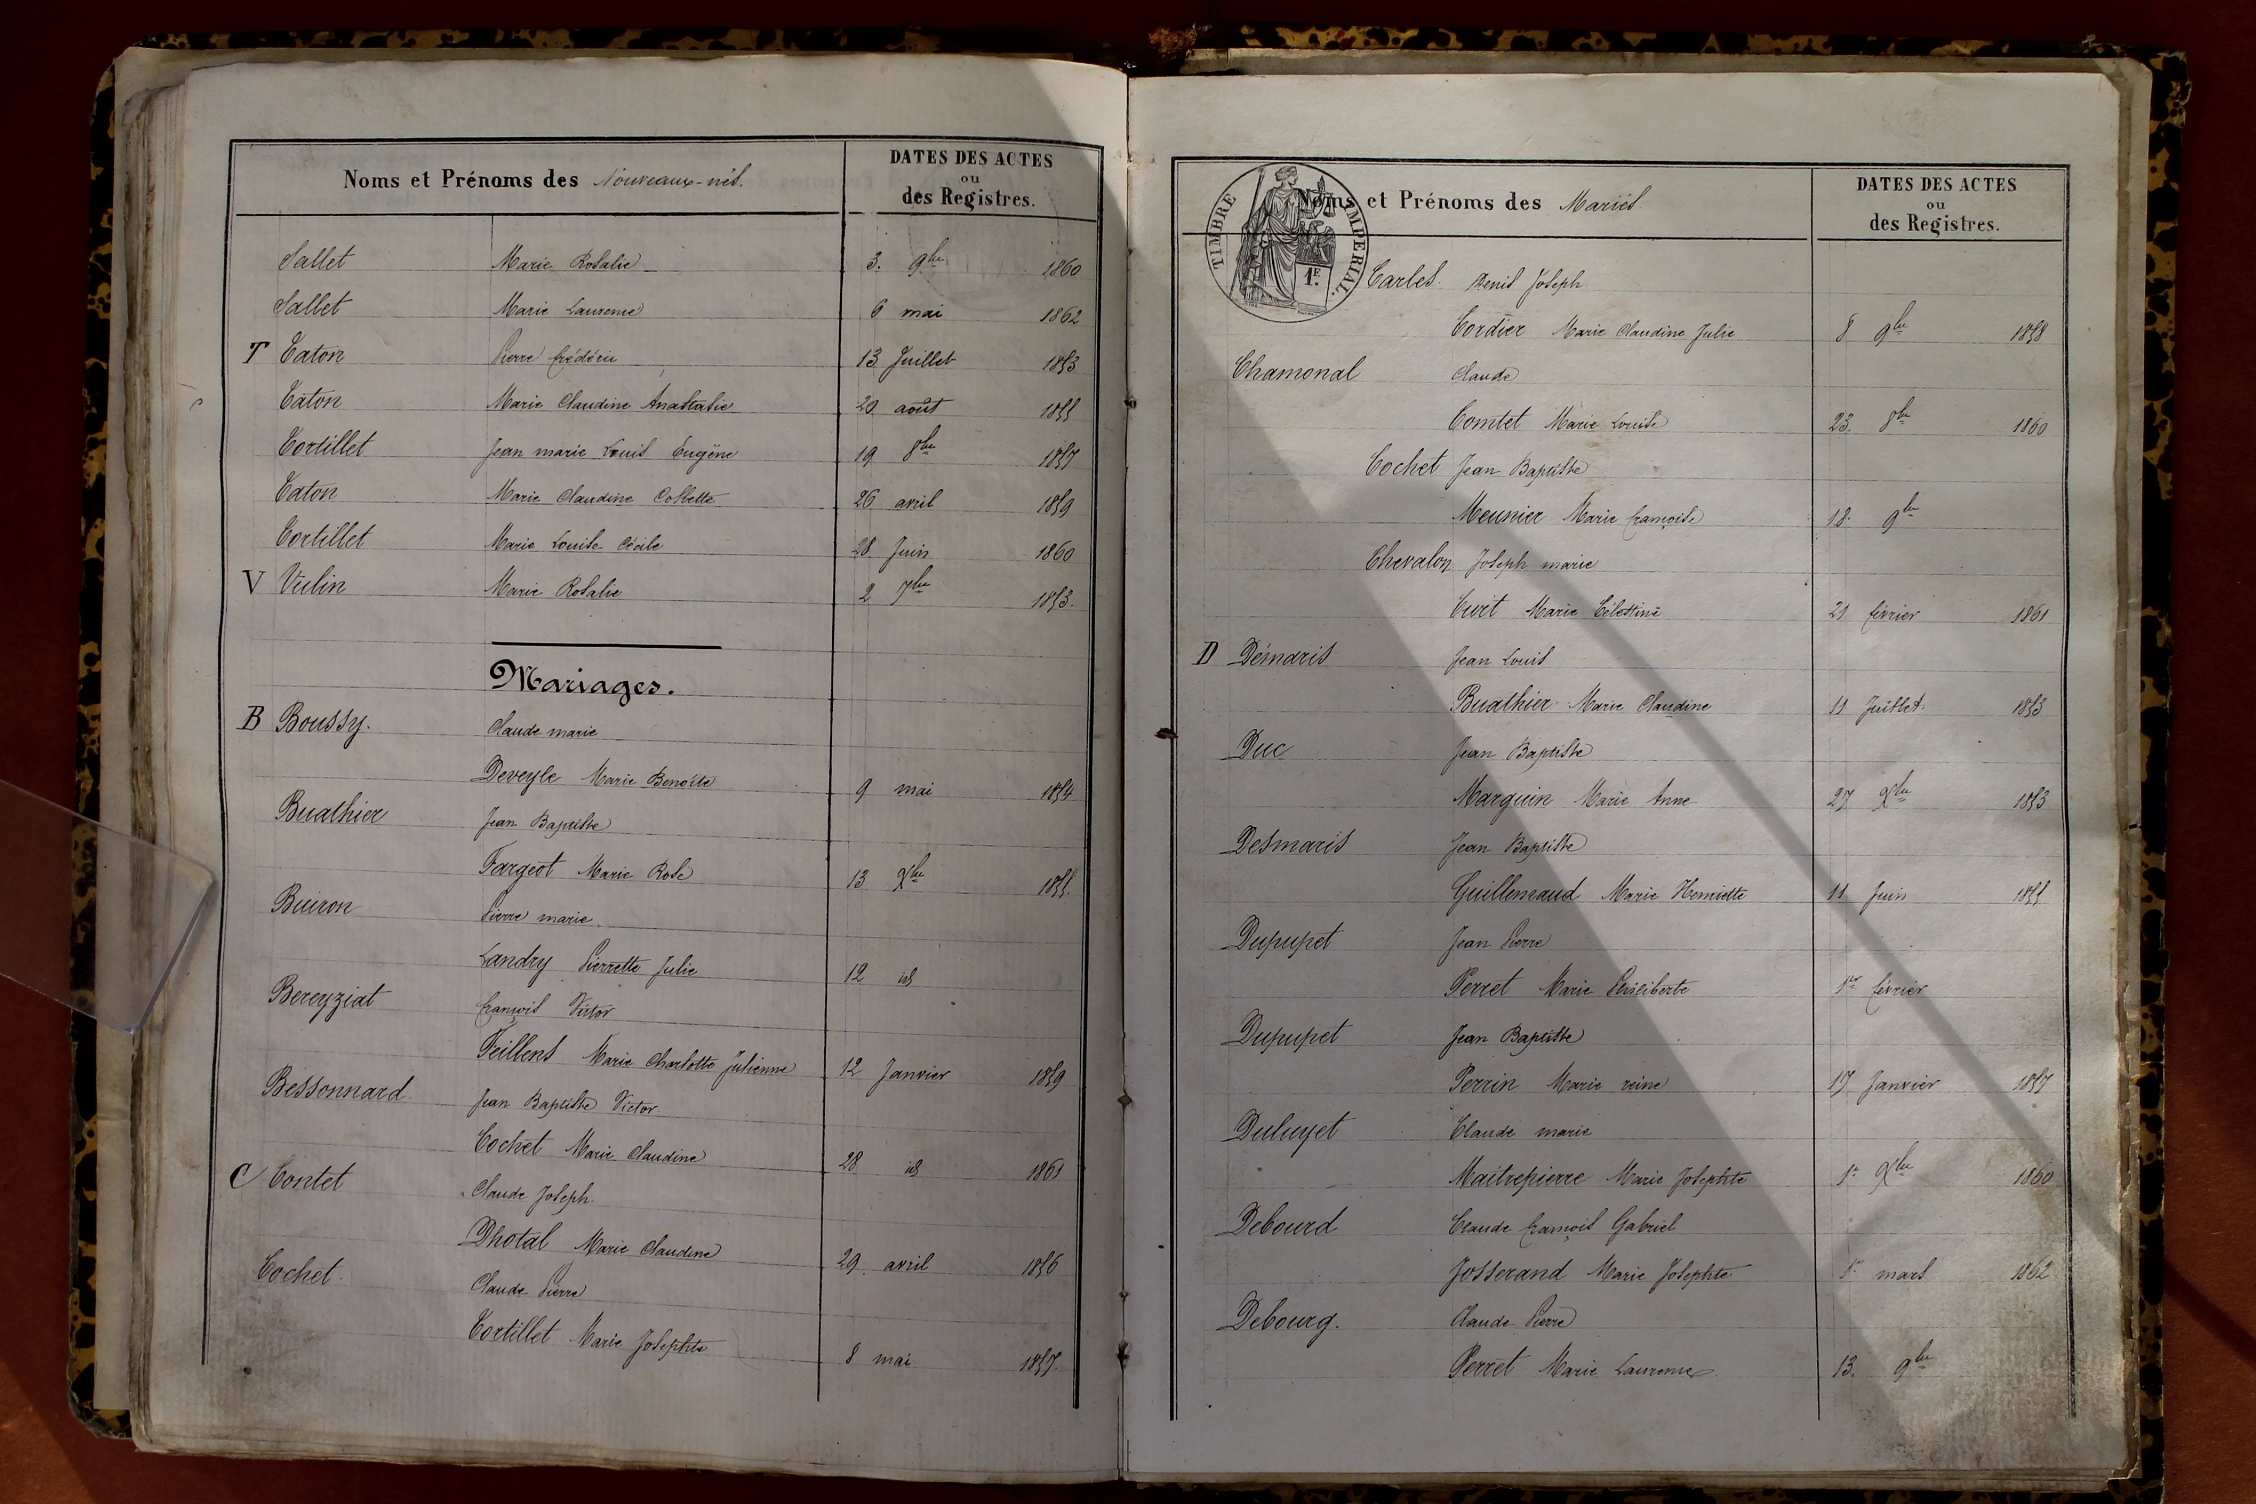 Noms et Prénoms des Nouveaux-nés.
DATES DES ACTES
ou
des Registres.
Sallet Marie Rosalie 3. 9bre 1860
Sallet Marie Laurence 6 mai 1862
T Taton Pierre frédéric 13 Juillet 1853
Taton Marie Claudine Anastasie 20 août 1855
Tortillet Jean marie Louis Eugène 19 8bre 1857
Taton Marie Claudine Collette 26 avril 1859
Tortillet Marie Louise Cécile 28 Juin 1860
V Vulin Marie Rosalie 2 7bre 1853.
Mariages.
B Boussy. Claude marie
Deveyle Marie Benoîte 9 mai 1854
Buathier Jean Baptiste
Fargeot Marie Rose 13 Xbre 1855.
Buiron Pierre marie
Landry Pierrette Julie 12 id
Bereyziat françois Victor
Feillens Marie Charlotte Julienne 12 Janvier 1859
Bessonnard Jean Baptiste Victor
Cochet Marie Claudine 28 id 1861
C Contet Claude Joseph
Dhotal Marie Claudine 29 avril 1856
Cochet. Claude Pierre
Tortillet Marie Josephte 8 mai 1857.
TIMBRE IMPERIAL.
1F.
Noms et Prénoms des Mariés
DATES DES ACTES
ou
des Registres.
Carles Denis Joseph
Cordier Marie Claudine Julie 8 9bre 1858
Chamonal Claude
Comtet Marie Louise 23. 8bre 1860
Cochet Jean Baptiste
Meunier Marie françoise 18. 9bre
Chevalon Joseph marie
Curt Marie Célestine 21 février 1861
D Démaris Jean Louis
Buathier Marie Claudine 11 Juillet. 1853
Duc Jean Baptiste
Marguin Marie Anne 27 Xbre 1853
Desmaris Jean Baptiste
Guillemaud Marie Henriette 11 Juin 1855
Dupupet Jean Pierre
Perret Marie Philiberte 1er février
Dupupet Jean Baptiste
Perrin Marie reine 17 Janvier 1857
Duluyet Claude marie
Maîtrepierre Marie Josephte 1er Xbre 1860
Debourd Claude françois Gabriel
Josserand Marie Josephte 1er mars 1862
Debourg. Claude Pierre
Perret Marie Laurence 13. 9bre